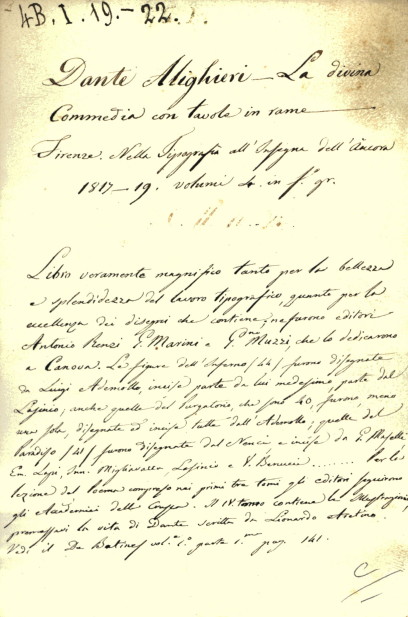 4B. I. 19. - 22.
Dante Alighieri — La divina
Commedia con tavole in rame
Firenze. Nella Tipografia all'Insegna dell'Ancora
1817-19. volumi 4. in f.º gr.
Libro veramente magnifico tanto per la bellezza
e splendidezza del lavoro tipografico, quanto per la
eccellenza dei disegni che contiene, ne furono editori
Antonio Renzi G. Marini e G. Muzzi, che lo dedicarono
a Canova. Le figure dell'Inferno (44) furono disegnate
da Luigi Ademollo, incise parte da lui medesimo, parte dal
Lasinio; anche quelle del Purgatorio, che sono 40, furono, meno
una sola, disegnate ed incise tutte dall'Ademollo; quelle del
Paradiso (41) furono disegnate dal Nencini e incise da G. Masselli
Em. Lapi, Inn. Migliavacca, Lasinio e V. Benucci ....... Per la
lezione del poema compreso nei primi tre tomi gli editori seguirono
gli Accademici della Crusca. Il IV. tomo contiene le illustrazioni,
premessavi la vita di Dante scritta da Leonardo Aretino.
Vedi il De Batines vol.º 1.º parte 1.ma pag. 141.